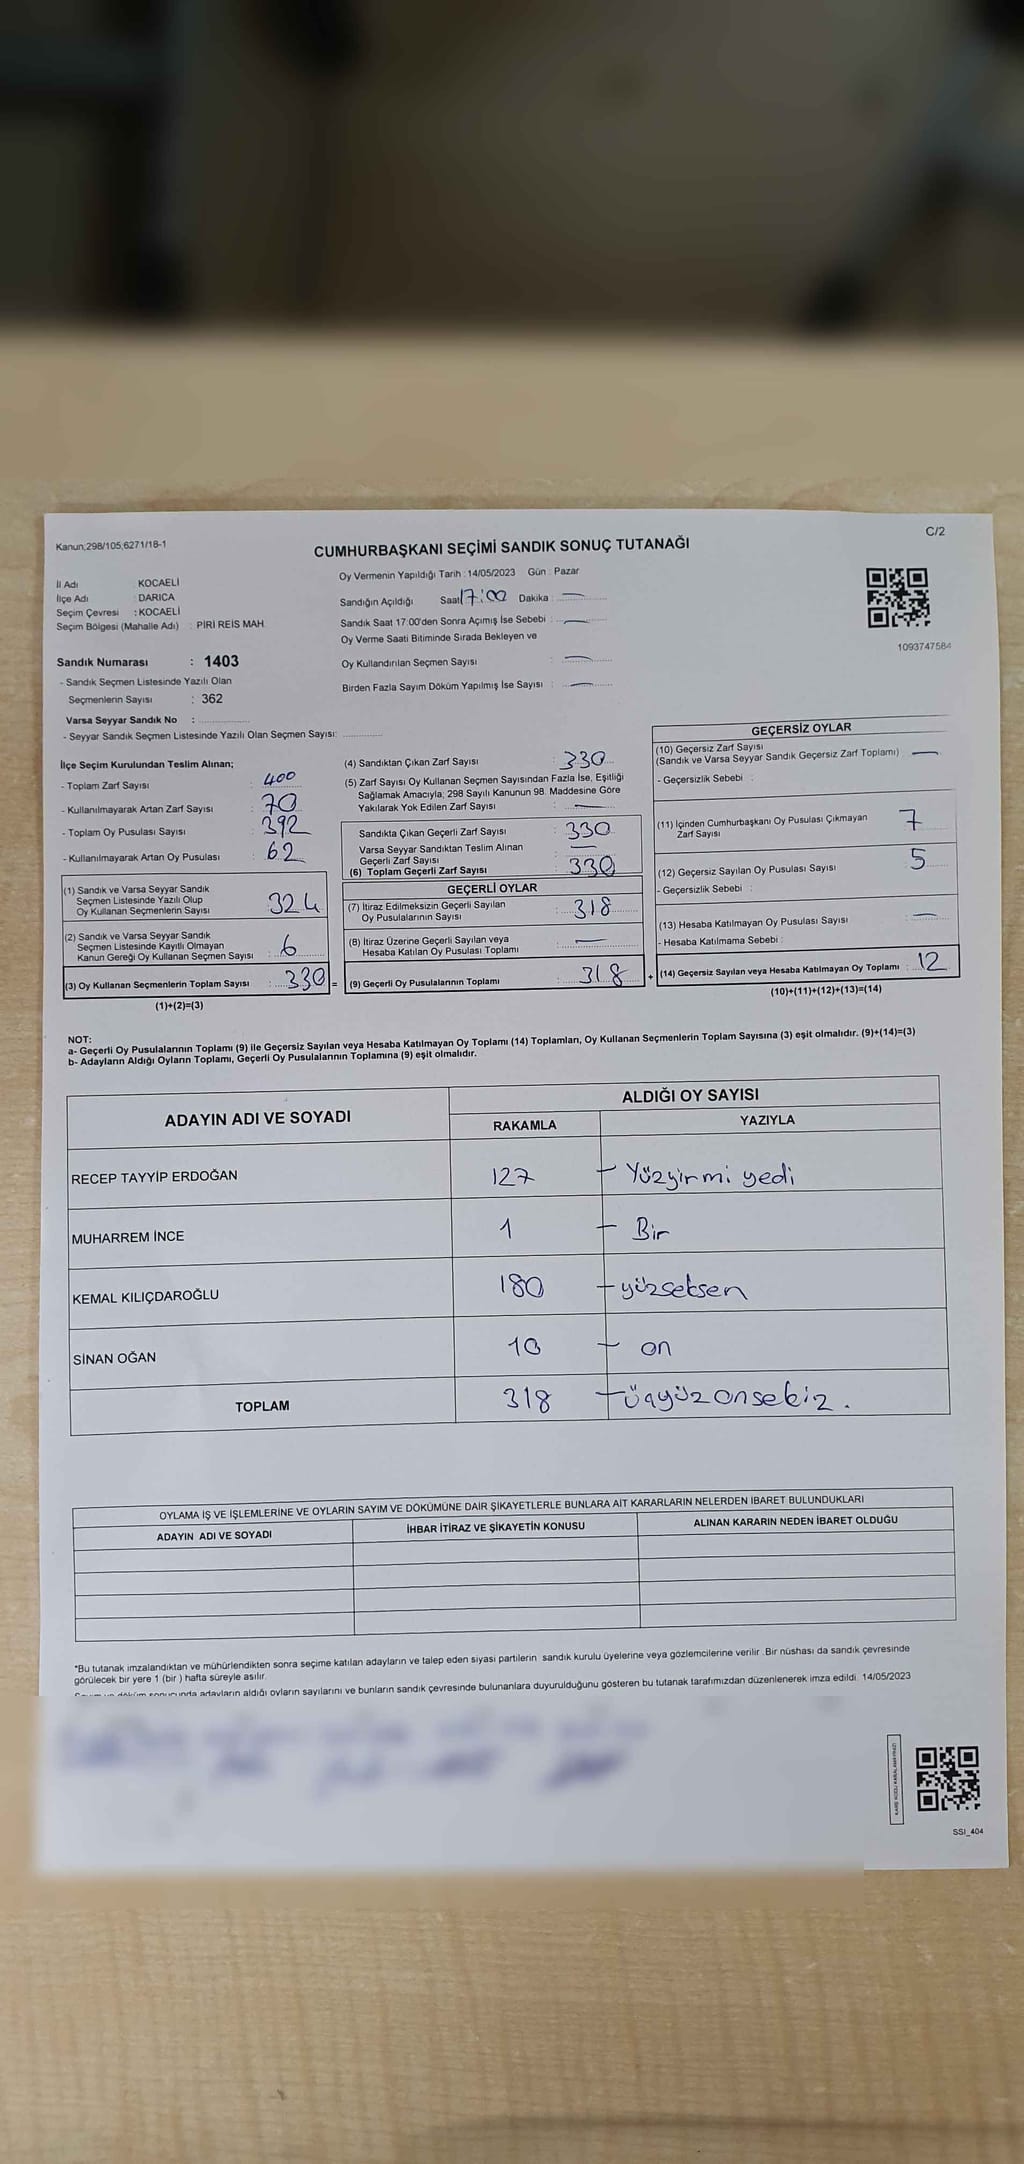 Kanun;298/105;6271/18-1
C/2
CUMHURBAŞKANI SEÇİMİ SANDIK SONUÇ TUTANAĞI
İl Adı : KOCAELİ
İlçe Adı : DARICA
Seçim Çevresi : KOCAELİ
Seçim Bölgesi (Mahalle Adı) : PİRİ REİS MAH.
Sandık Numarası : 1403
- Sandık Seçmen Listesinde Yazılı Olan
Seçmenlerin Sayısı : 362
Varsa Seyyar Sandık No :
- Seyyar Sandık Seçmen Listesinde Yazılı Olan Seçmen Sayısı:
Oy Vermenin Yapıldığı Tarih : 14/05/2023 Gün : Pazar
Sandığın Açıldığı Saat 17:00 Dakika : —
Sandık Saat 17:00'den Sonra Açımış İse Sebebi : —
Oy Verme Saati Bitiminde Sırada Bekleyen ve
Oy Kullandırılan Seçmen Sayısı : —
Birden Fazla Sayım Döküm Yapılmış İse Sayısı : —
1093747584
İlçe Seçim Kurulundan Teslim Alınan;
- Toplam Zarf Sayısı : 400
- Kullanılmayarak Artan Zarf Sayısı : 70
- Toplam Oy Pusulası Sayısı : 392
- Kullanılmayarak Artan Oy Pusulası : 62
(1) Sandık ve Varsa Seyyar Sandık
Seçmen Listesinde Yazılı Olup
Oy Kullanan Seçmenlerin Sayısı : 324
(2) Sandık ve Varsa Seyyar Sandık
Seçmen Listesinde Kayıtlı Olmayan
Kanun Gereği Oy Kullanan Seçmen Sayısı : 6
(3) Oy Kullanan Seçmenlerin Toplam Sayısı : 330 =
(1)+(2)=(3)
(4) Sandıktan Çıkan Zarf Sayısı : 330
(5) Zarf Sayısı Oy Kullanan Seçmen Sayısından Fazla İse, Eşitliği
Sağlamak Amacıyla; 298 Sayılı Kanunun 98. Maddesine Göre
Yakılarak Yok Edilen Zarf Sayısı : —
Sandıkta Çıkan Geçerli Zarf Sayısı : 330
Varsa Seyyar Sandıktan Teslim Alınan
Geçerli Zarf Sayısı : —
(6) Toplam Geçerli Zarf Sayısı : 330
GEÇERLİ OYLAR
(7) İtiraz Edilmeksizin Geçerli Sayılan
Oy Pusulalarının Sayısı : 318
(8) İtiraz Üzerine Geçerli Sayılan veya
Hesaba Katılan Oy Pusulası Toplamı : —
(9) Geçerli Oy Pusulalarının Toplamı : 318 +
GEÇERSİZ OYLAR
(10) Geçersiz Zarf Sayısı
(Sandık ve Varsa Seyyar Sandık Geçersiz Zarf Toplamı) : —
- Geçersizlik Sebebi :
(11) İçinden Cumhurbaşkanı Oy Pusulası Çıkmayan
Zarf Sayısı : 7
(12) Geçersiz Sayılan Oy Pusulası Sayısı : 5
- Geçersizlik Sebebi :
(13) Hesaba Katılmayan Oy Pusulası Sayısı : —
- Hesaba Katılmama Sebebi :
(14) Geçersiz Sayılan veya Hesaba Katılmayan Oy Toplamı : 12
(10)+(11)+(12)+(13)=(14)
NOT:
a- Geçerli Oy Pusulalarının Toplamı (9) ile Geçersiz Sayılan veya Hesaba Katılmayan Oy Toplamı (14) Toplamları, Oy Kullanan Seçmenlerin Toplam Sayısına (3) eşit olmalıdır. (9)+(14)=(3)
b- Adayların Aldığı Oyların Toplamı, Geçerli Oy Pusulalarının Toplamına (9) eşit olmalıdır.
ADAYIN ADI VE SOYADI
ALDIĞI OY SAYISI
RAKAMLA YAZIYLA
RECEP TAYYİP ERDOĞAN 127 – Yüzyirmi yedi
MUHARREM İNCE 1 – Bir
KEMAL KILIÇDAROĞLU 180 – yüzseksen
SİNAN OĞAN 10 – on
TOPLAM 318 – üçyüzonsekiz.
OYLAMA İŞ VE İŞLEMLERİNE VE OYLARIN SAYIM VE DÖKÜMÜNE DAİR ŞİKAYETLERLE BUNLARA AİT KARARLARIN NELERDEN İBARET BULUNDUKLARI
ADAYIN ADI VE SOYADI İHBAR İTİRAZ VE ŞİKAYETİN KONUSU ALINAN KARARIN NEDEN İBARET OLDUĞU
*Bu tutanak imzalandıktan ve mühürlendikten sonra seçime katılan adayların ve talep eden siyasi partilerin sandık kurulu üyelerine veya gözlemcilerine verilir. Bir nüshası da sandık çevresinde
görülecek bir yere 1 (bir) hafta süreyle asılır.
Sayım ve döküm sonucunda adayların aldığı oyların sayılarını ve bunların sandık çevresinde bulunanlara duyurulduğunu gösteren bu tutanak tarafımızdan düzenlenerek imza edildi. 14/05/2023
SSI_404